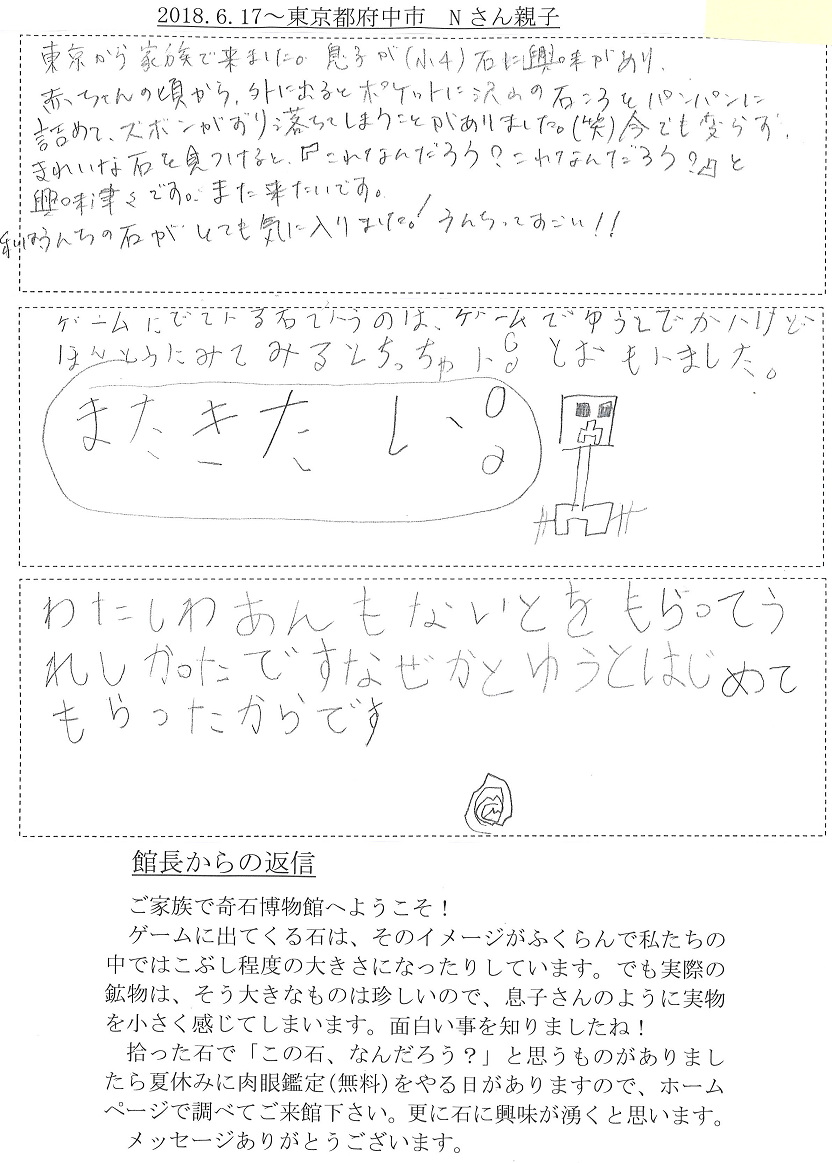 2018.6.17～東京都府中市　Nさん親子
東京から家族で来ました。息子が(小4)石に興味があり、
赤ちゃんの頃から、外に出るとポケットに沢山の石ころをパンパンに
詰めて、ズボンがずり落ちてしまうことがありました。(笑)今でも変らず、
きれいな石を見つけると、『これなんだろう？これなんだろう？』と
興味津々です。また来たいです。
私はうんちの石がとても気に入りました！うんちってすごい!!
ゲームにでている石ていうのは、ゲームでゆうとでかいけど
ほんとうにみてみるとちっちゃい。とおもいました。
またきたい。
わたしわあんもないとをもらってう
れしかったですなぜかとゆうとはじめて
もらったからです
館長からの返信
ご家族で奇石博物館へようこそ！
ゲームに出てくる石は、そのイメージがふくらんで私たちの
中ではこぶし程度の大きさになったりしています。でも実際の
鉱物は、そう大きなものは珍しいので、息子さんのように実物
を小さく感じてしまいます。面白い事を知りましたね！
拾った石で「この石、なんだろう？」と思うものがありまし
たら夏休みに肉眼鑑定(無料)をやる日がありますので、ホーム
ページで調べてご来館下さい。更に石に興味が湧くと思います。
メッセージありがとうございます。